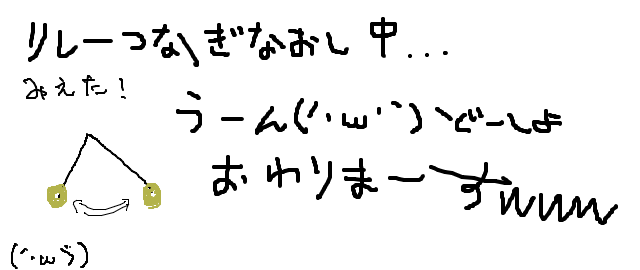 リレーつなぎなおし中...
みえた!
うーん(´・ω・`)どーしよ
おわりまーすwwww
(´・ω・`)